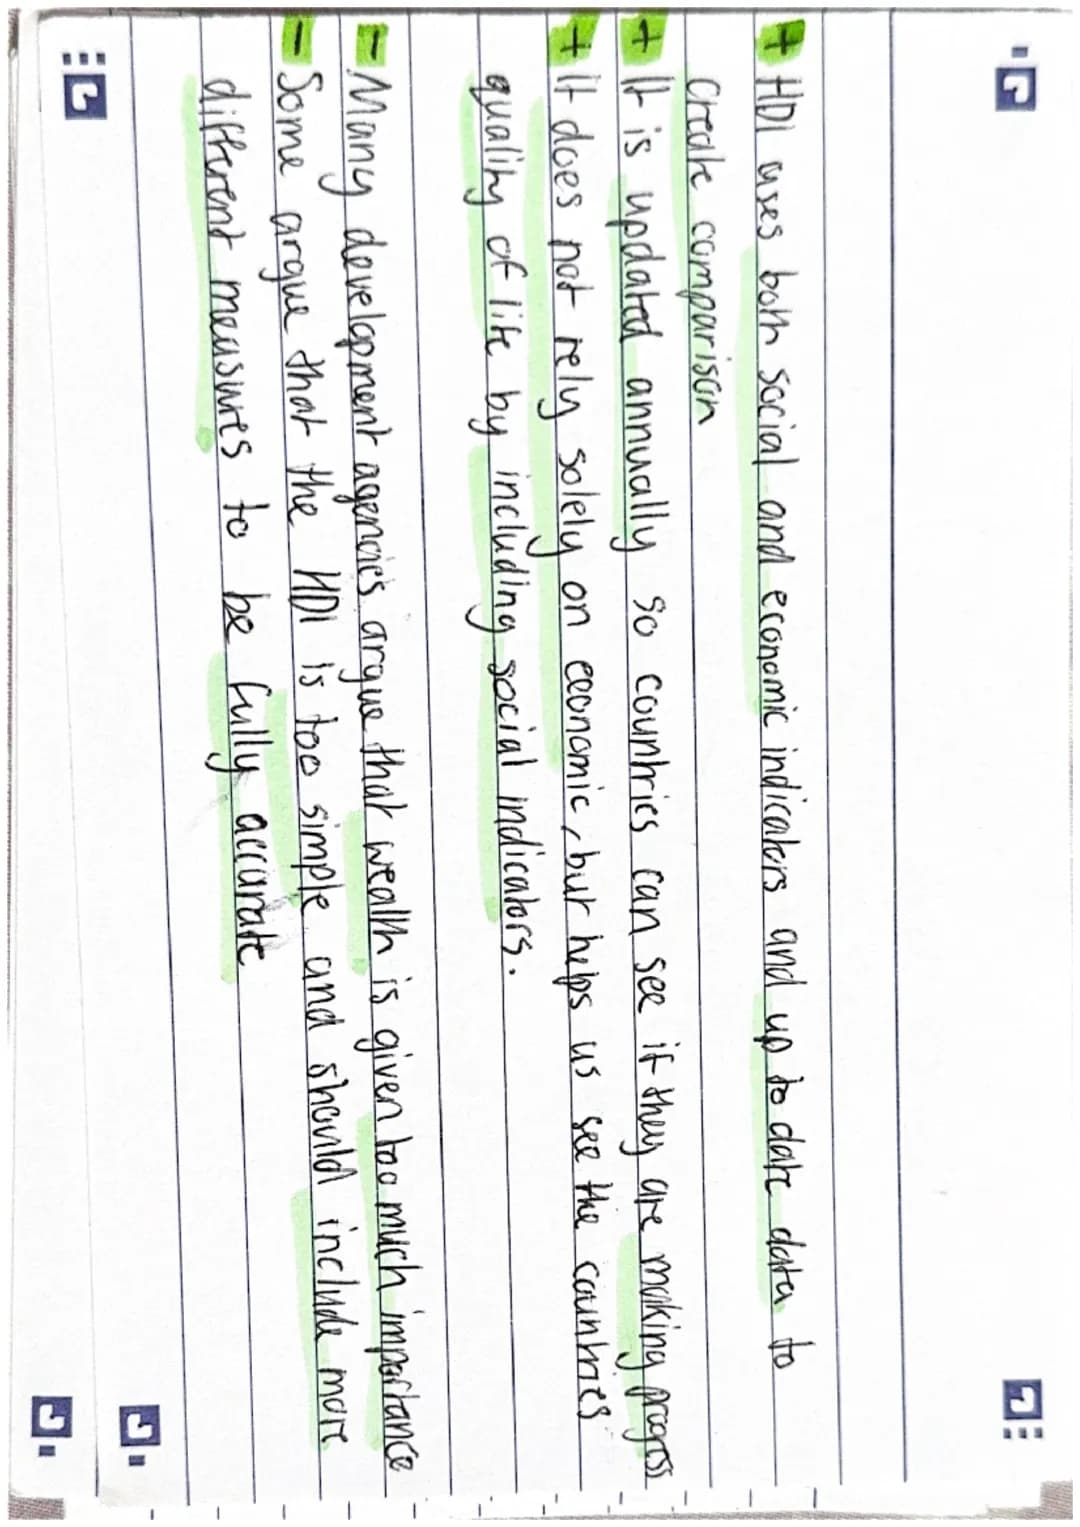 + HDI uses both social and economic indicators and up to date data to
create comparison
+ It is updated annually so countries can see if they are making progress
+ It does not rely solely on economic, but helps us see the countries
quality of life by including social indicators.
- Many development agencies argue that wealth is given too much importance
- Some argue that the HDI is too simple and should include more
different measures to be fully accurate